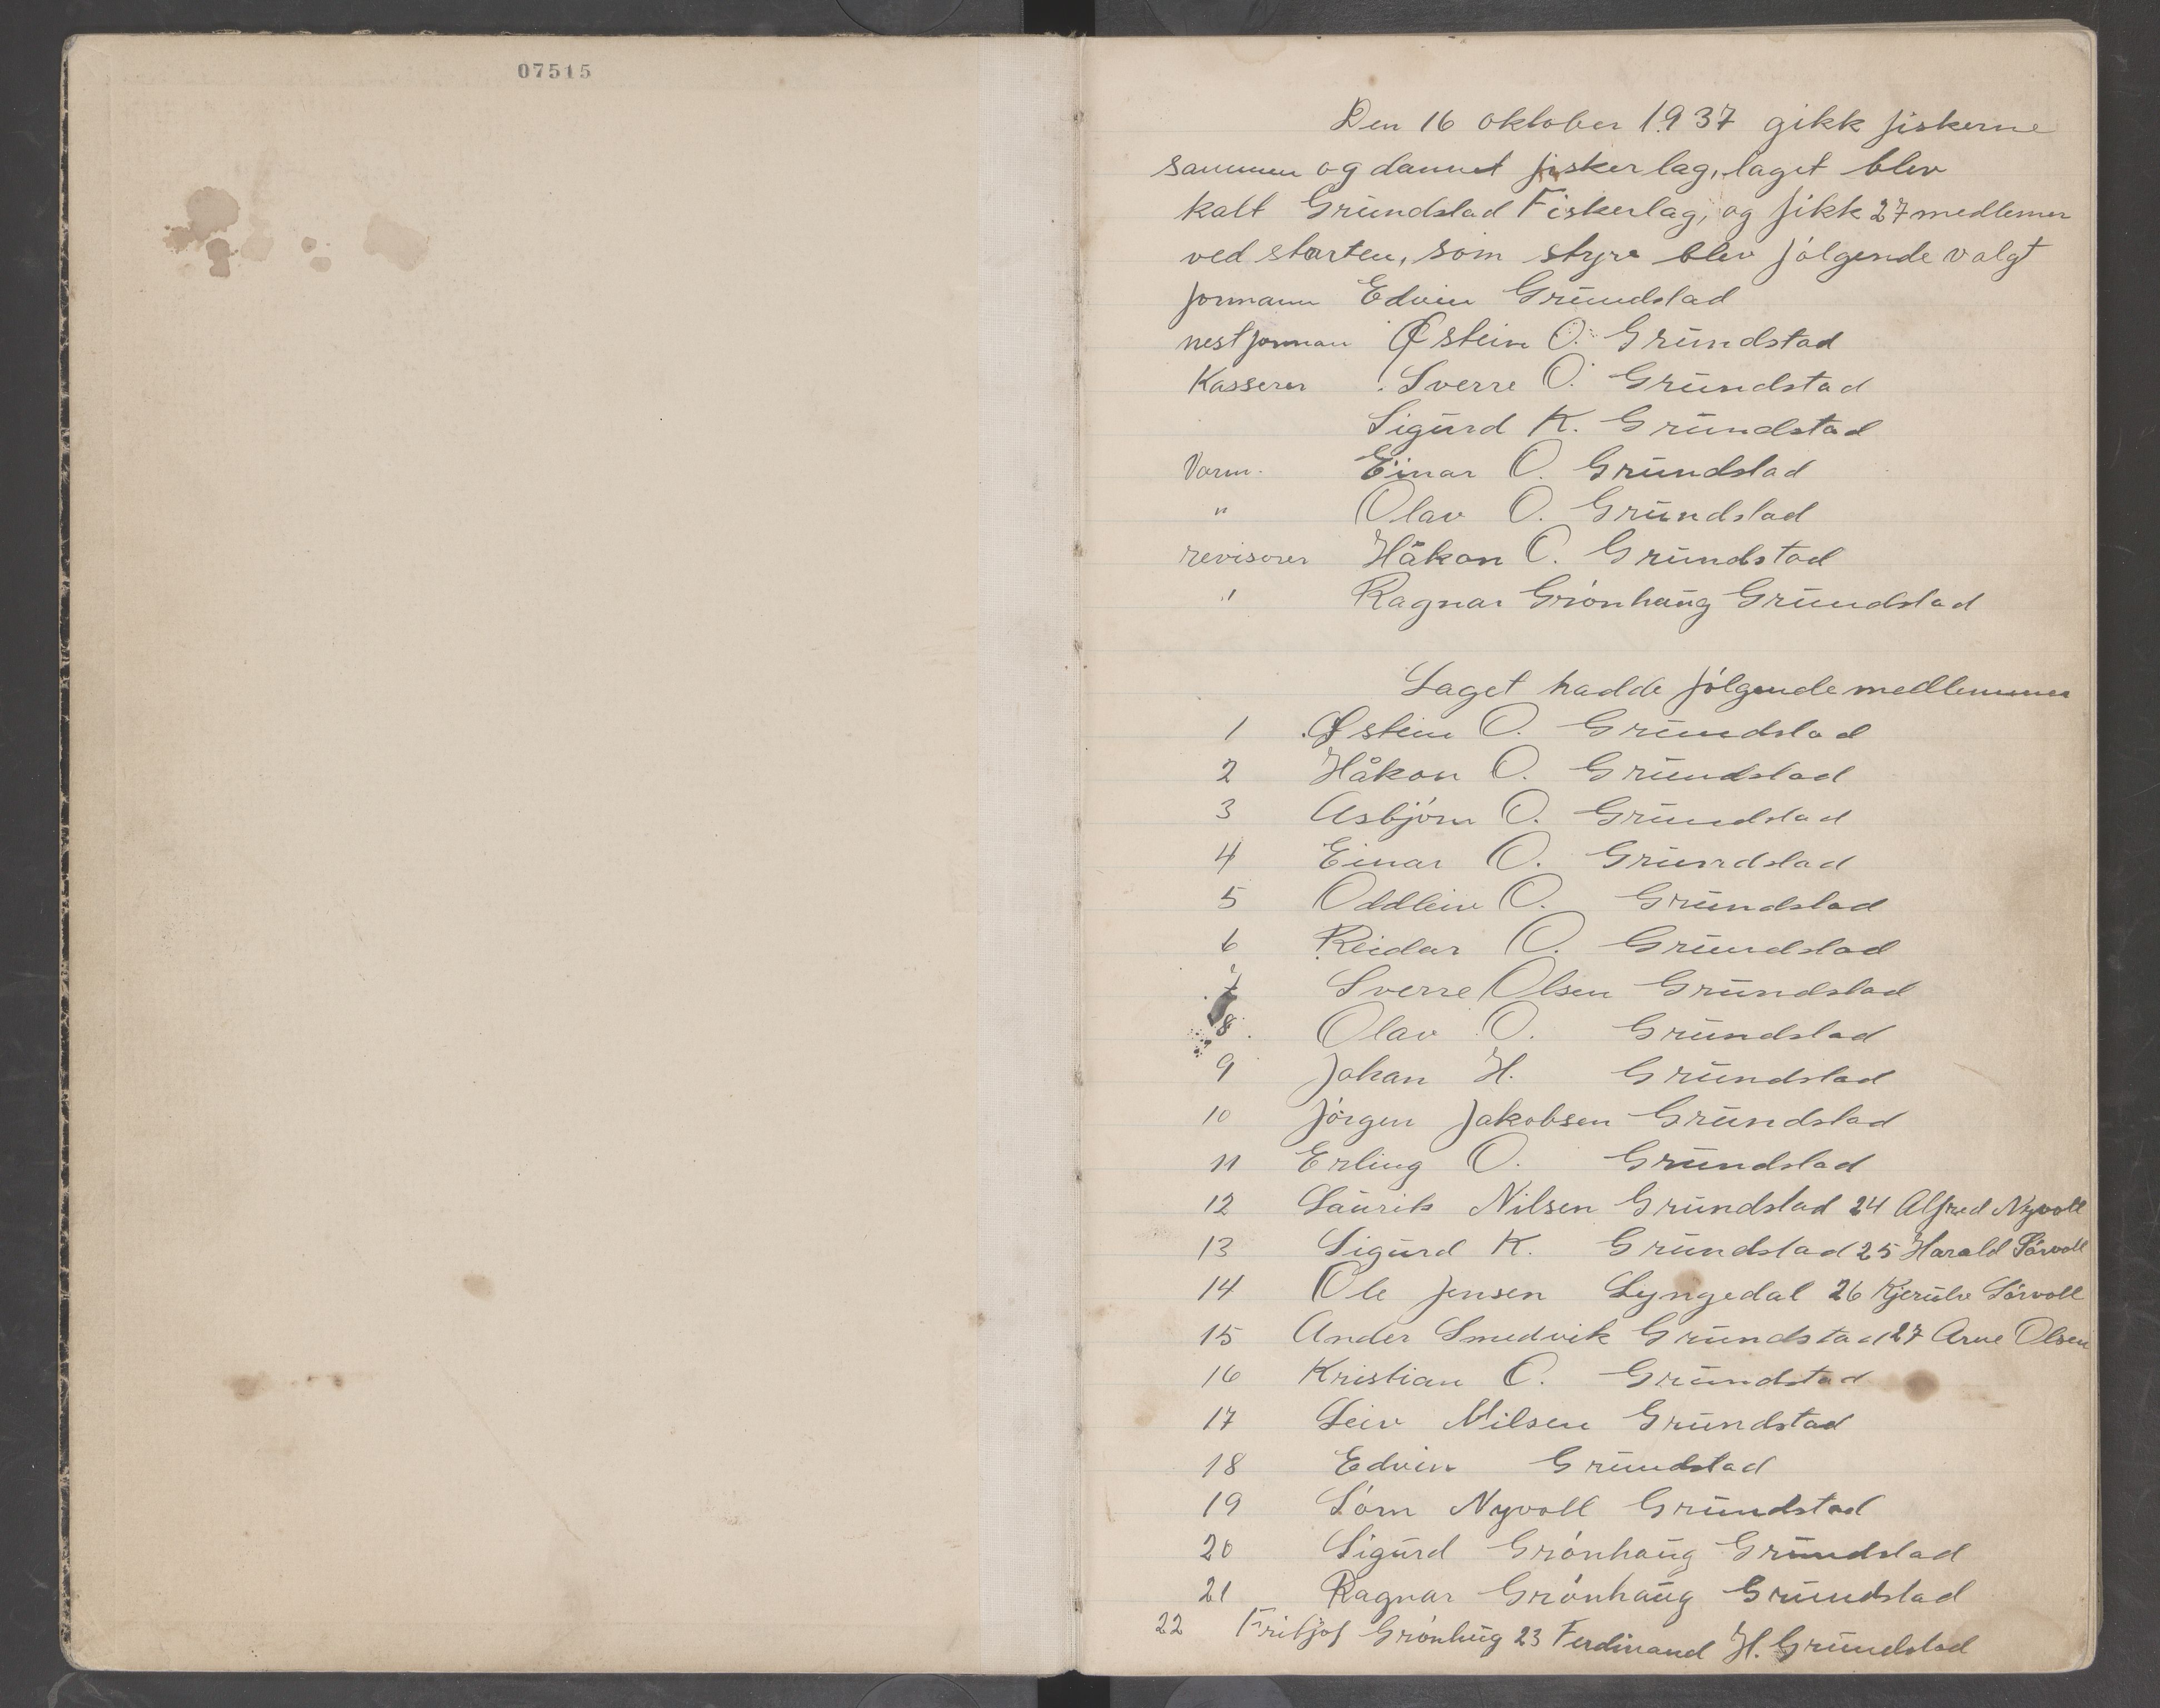 07515
Den 16 oktober 1937 gikk fiskerne
sammen og dannet fiskerlag, laget blev
kalt Grundstad Fiskerlag, og fikk 27 medlemer
ved starten, som styre blev følgende valgt
formann Edvin Grundstad
nestforman Østein O. Grundstad
Kasserer Sverre O. Grundstad
Sigurd K. Grundstad
Varm. Einar O. Grundstad
" Olav O. Grundstad
revisorer Håkon O. Grundstad
" Ragnar Grønhaug Grundstad
Laget hadde følgende medlemmer
1 Østein O. Grundstad
2 Håkon O. Grundstad
3 Asbjørn O. Grundstad
4 Einar O. Grundstad
5 Oddleiv O. Grundstad
6 Reidar O. Grundstad
7 Sverre Olsen Grundstad
8 Olav O. Grundstad
9 Johan H. Grundstad
10 Jørgen Jakobsen Grundstad
11 Erling O. Grundstad
12 Laurits Nilsen Grundstad 24 Alfred Nyvoll
13 Sigurd K. Grundstad 25 Harald Sørvoll
14 Ole Jensen Lyngedal 26 Kjerulv Sørvoll
15 Ander Smedvik Grundstad 27 Arne Olsen
16 Kristian O. Grundstad
17 Leiv Nilsen Grundstad
18 Edvin Grundstad
19 Sørn Nyvoll Grundstad
20 Sigurd Grønhaug Grundstad
21 Ragnar Grønhaug Grundstad
22 Fritjof Grønhug 23 Ferdinand H. Grundstad